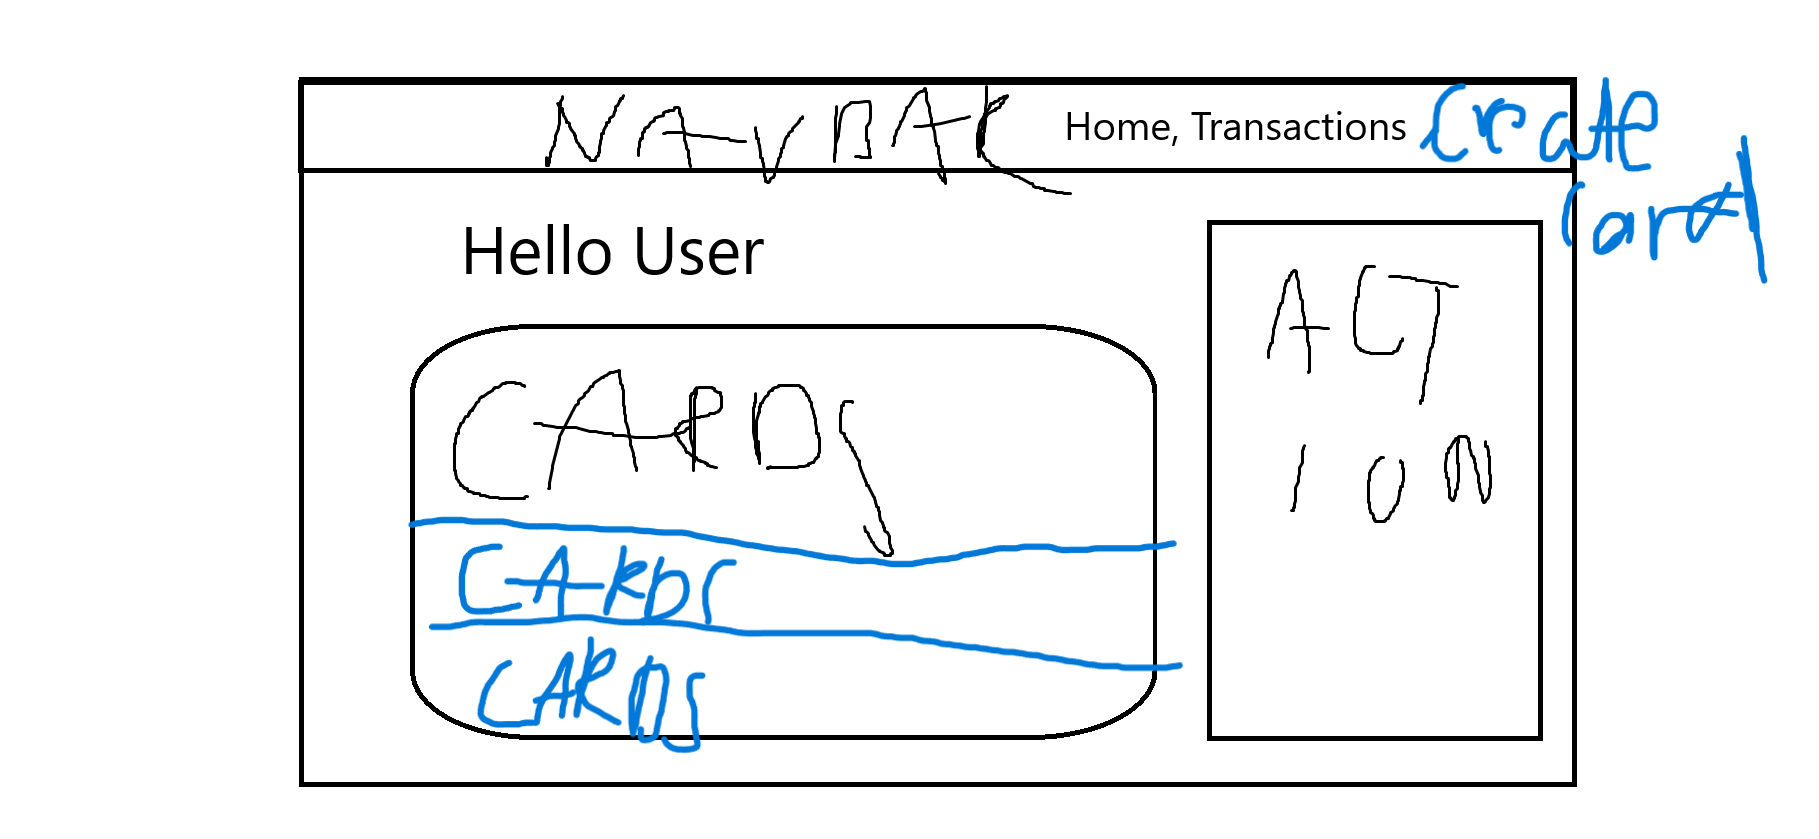 NAVBAR Home, Transactions Create
Card
Hello User
ACT
ION
CARDS
CARDS
CARDS